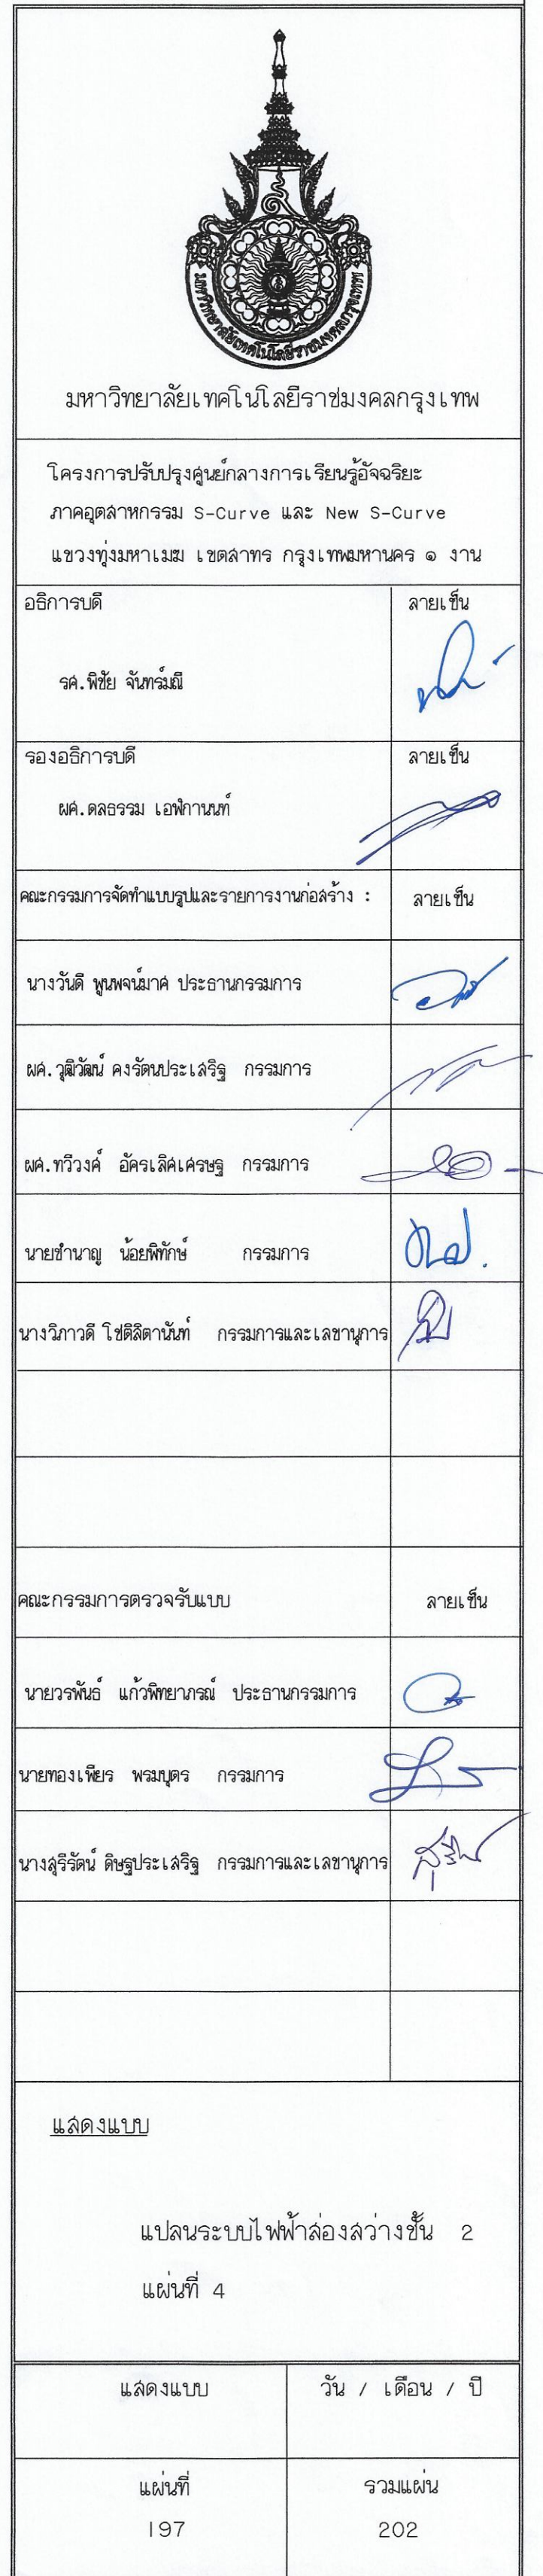 มหาวิทยาลัยเทคโนโลยีราชมงคลกรุงเทพ
มหาวิทยาลัยเทคโนโลยีราชมงคลกรุงเทพ
โครงการปรับปรุงศูนย์กลางการเรียนรู้อัจฉริยะ
ภาคอุตสาหกรรม S-Curve และ New S-Curve
แขวงทุ่งมหาเมฆ เขตสาทร กรุงเทพมหานคร ๑ งาน
อธิการบดี ลายเซ็น
รศ.พิชัย จันทร์มณี
รองอธิการบดี ลายเซ็น
ผศ.ดลธรรม เอฬกานนท์
คณะกรรมการจัดทำแบบรูปและรายการงานก่อสร้าง : ลายเซ็น
นางวันดี พูนพจน์มาศ ประธานกรรมการ
ผศ.วุฒิวัฒน์ คงรัตนประเสริฐ กรรมการ
ผศ.ทวีวงศ์ อัครเลิศเศรษฐ กรรมการ
นายชำนาญ น้อยพิทักษ์ กรรมการ
นางวิภาวดี โชติลิตานันท์ กรรมการและเลขานุการ
คณะกรรมการตรวจรับแบบ ลายเซ็น
นายวรพันธ์ แก้วพิทยาภรณ์ ประธานกรรมการ
นายทองเพียร พรมบุตร กรรมการ
นางสุรีรัตน์ ดิษฐประเสริฐ กรรมการและเลขานุการ
แสดงแบบ
แปลนระบบไฟฟ้าส่องสว่างชั้น 2
แผ่นที่ 4
แสดงแบบ วัน / เดือน / ปี
แผ่นที่ รวมแผ่น
197 202